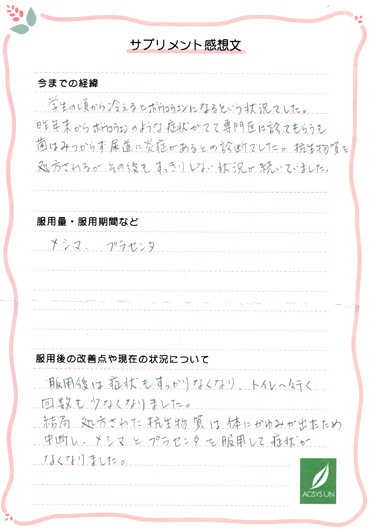 サプリメント感想文
今までの経緯
学生の頃から冷えるとボウコウエンになるという状況でした。
昨年末からボウコウエンのような症状がでて専門医に診てもらうも
菌はみつからず尿道に炎症があるとの診断でした。抗生物質を
処方されるが その後も すっきりしない状況が続いていました。
服用量・服用期間など
メシマ、 プラセンタ
服用後の改善点や現在の状況について
服用後は症状もすっかりなくなり、トイレへ行く
回数も少なくなりました。
結局 処方された抗生物質は体にかゆみが出たため
中断し、メシマとプラセンタを服用して症状が
なくなりました。
ACSYSUN